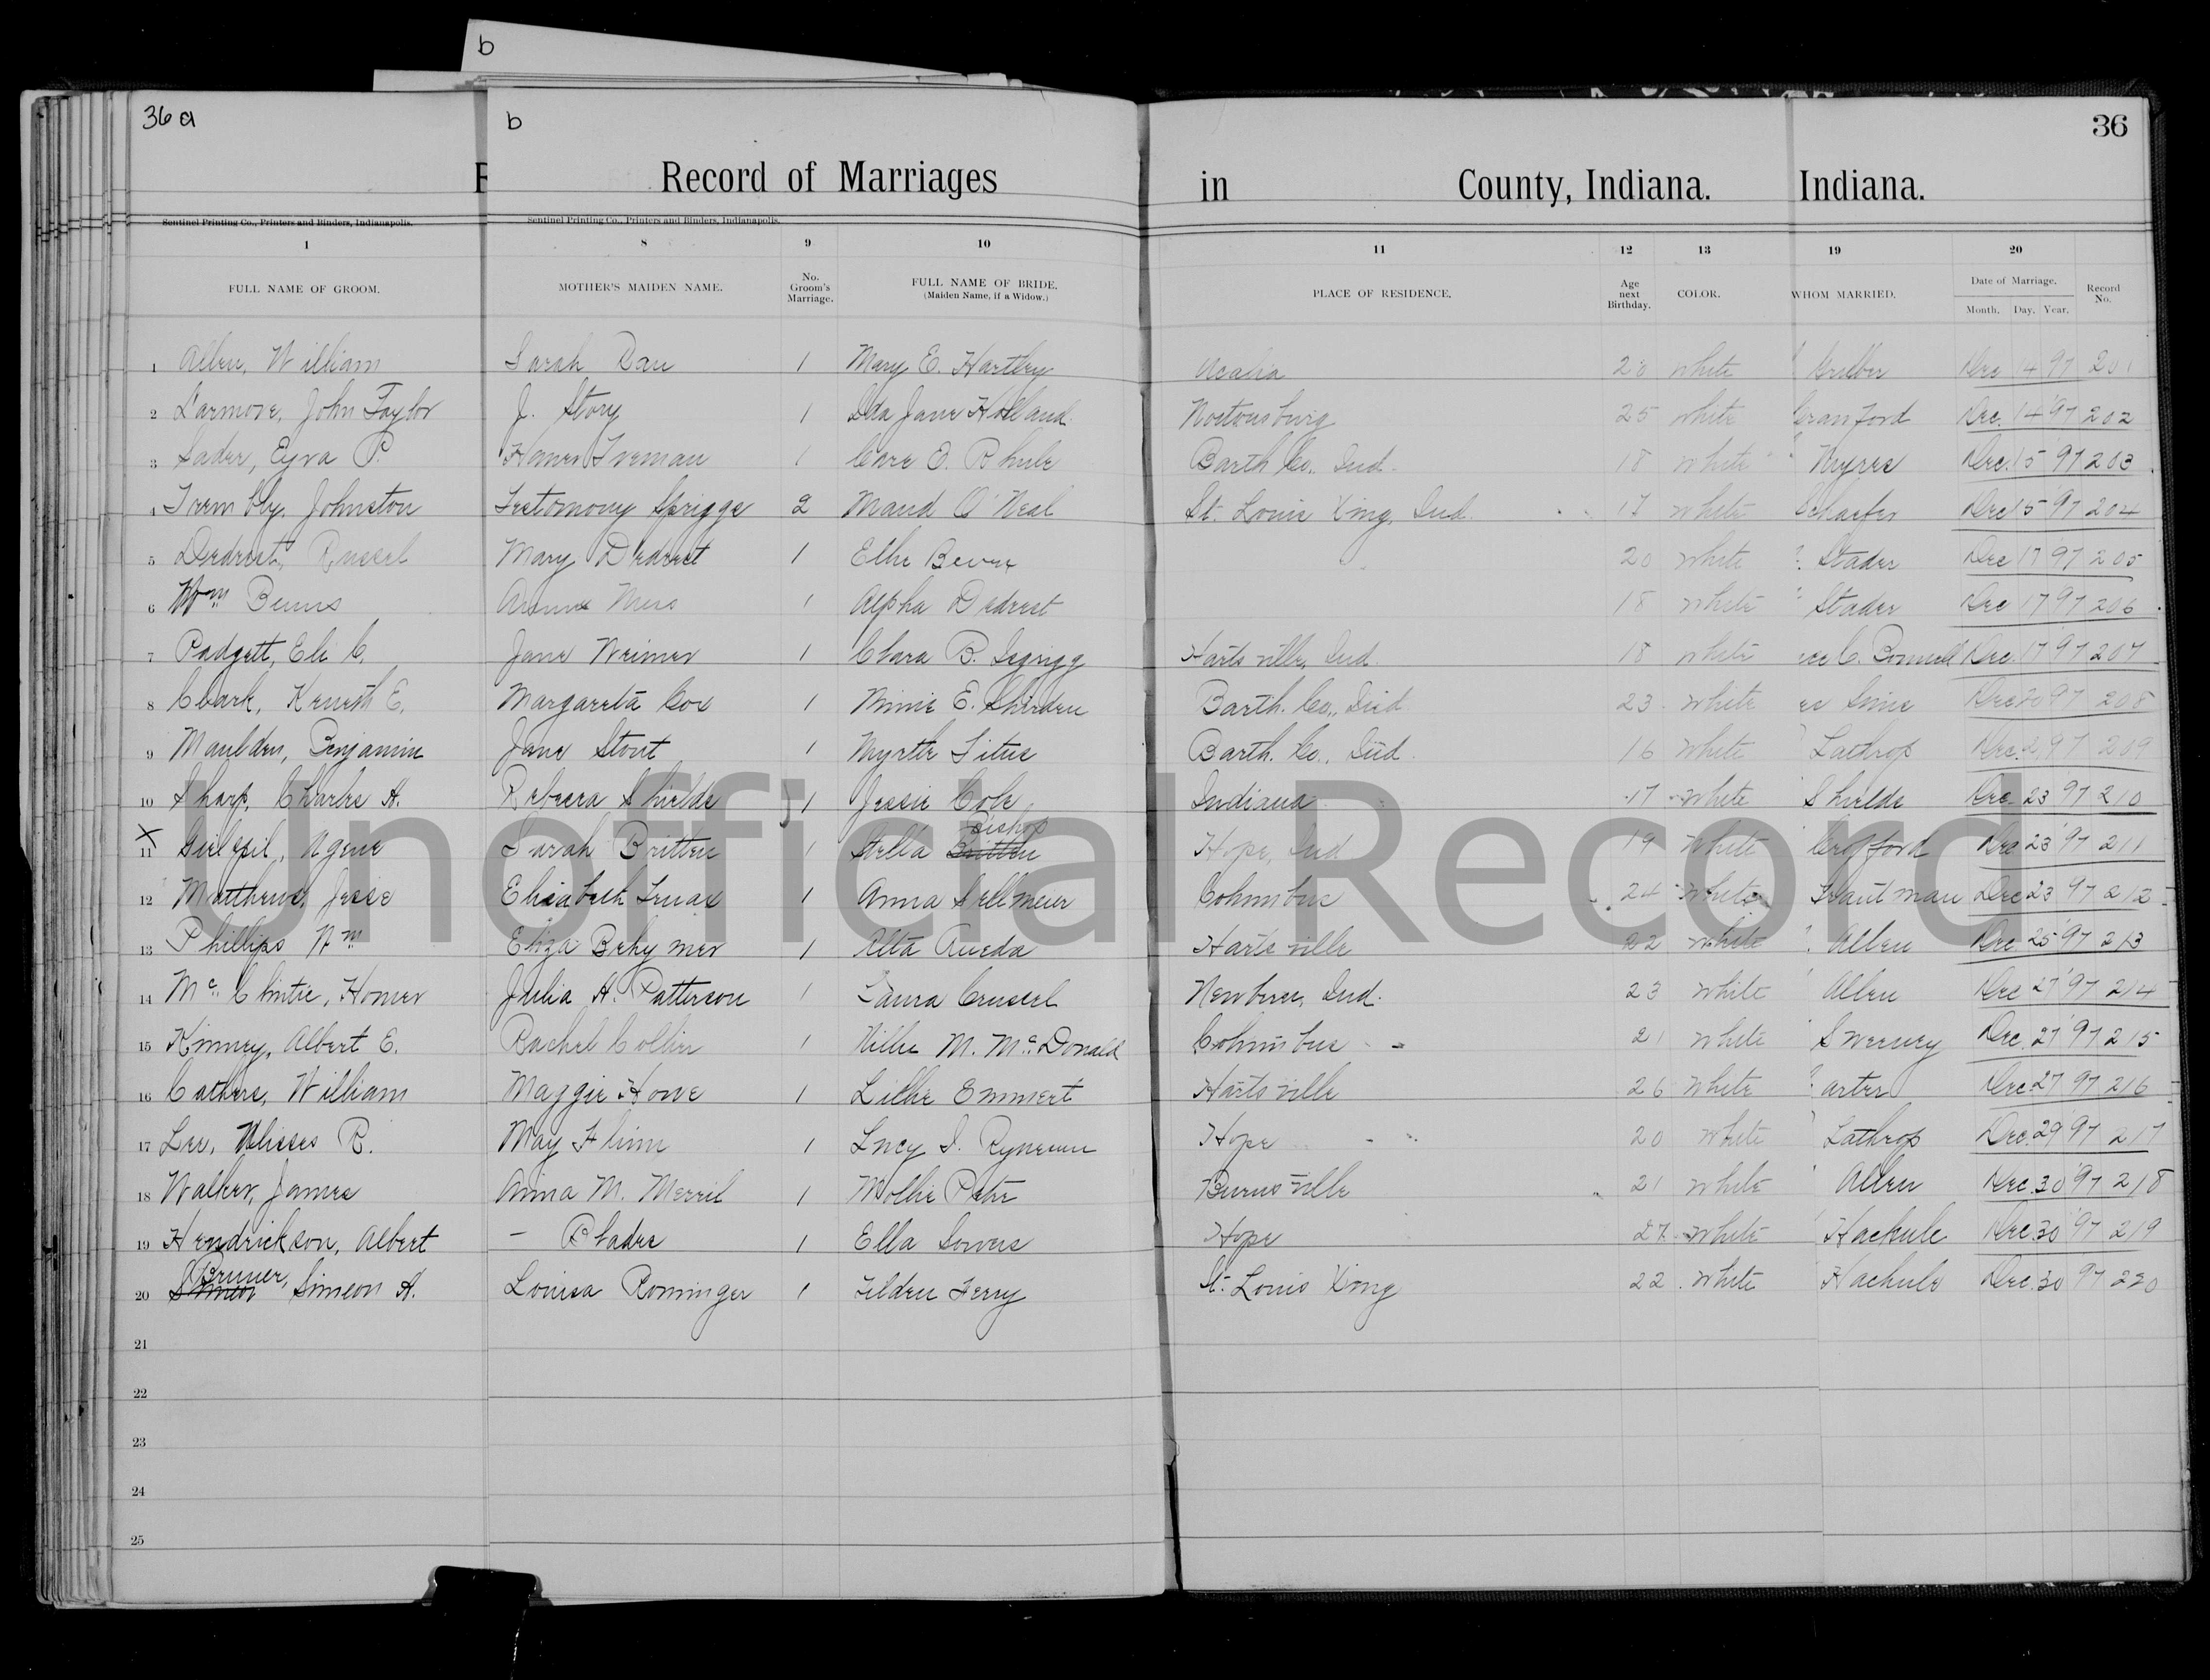 b
36 a
b
36
Record of Marriages in County, Indiana. Indiana.
Sentinel Printing Co., Printers and Binders, Indianapolis. Sentinel Printing Co., Printers and Binders, Indianapolis.
1 8 9 10 11 12 13 19 20
FULL NAME OF GROOM. MOTHER'S MAIDEN NAME. No. Groom's Marriage. FULL NAME OF BRIDE. (Maiden Name, if a Widow.) PLACE OF RESIDENCE. Age next Birthday. COLOR. WHOM MARRIED. Date of Marriage. Month. Day. Year. Record No.
1 Allen, William Sarah 1 Mary E. Hartley Azalia 20 white Dec 14 97 201
2 Larmore, John Taylor J. Story 1 Ida Jane Holland 25 white Crawford Dec. 14 97 202
3 Ezra P. 1 Barth Co., Ind. 18 white Dec. 15 97 203
4 Trembly, Johnston Testomony Spriggs 2 Maud O'Neal St. Louis Xing, Ind. 17 white Schaefer Dec 15 97 204
5 Dedrest, Russel Mary Dedrest 1 20 white Stader Dec 17 97 205
6 Wm 1 Alpha Dedrest 18 white Stader Dec 17 97 206
7 Padgett, Eli C. Jane Weimer 1 Clara B. Hartsville, Ind. 18 white Dec. 17 97 207
8 Clark, Keneth E. Margareta Cox 1 Minie E. Barth. Co., Ind. 23 white Dec 20 97 208
9 Maulden, Benjamin Jane Stout 1 Myrtle Titus Barth. Co., Ind. 16 white Lathrop Dec. 97 209
10 Sharp, Charles A. Rebecca Shields 1 Jessie Cole Indiana 17 white Shields Dec. 23 97 210
X
Bishop
11 Sarah Britten 1 Stella Britten Hope, Ind 19 white Dec 23 97 211
12 Matthews, Jesse Elizabeth 1 Anna Sellmeier Columbus 24 white Trautman Dec 23 97 212
13 Phillips Wm Eliza Behymer 1 Alta Hartsville 22 white Allen Dec. 25 97 213
14 Mc Clintic, Homer Julia A. Patterson 1 Laura Newbern, Ind. 23 white Allen Dec 27 97 214
15 Kinney, Albert E. Rachel Collier 1 M. McDonald Columbus 21 white Sweeney Dec. 27 97 215
16 Cathers, William Maggie Howe 1 Lillie Emmert Hartsville 26 white arter Dec 27 97 216
17 Lee, Ulisses R. May Flinn 1 Lucy Hope 20 white Lathrop Dec. 29 97 217
18 Walker, James Anna M. Merril 1 Mollie Burnsville 21 white Allen Dec. 30 97 218
19 Hendrickson, Albert - Rhades 1 Ella Sowers Hope 27 white Dec 30 97 219
Bruner,
20 Simeon A. Louisa Rominger 1 Tilden Ferry St. Louis Xing 22 white Dec. 30 97 220
21
22
23
24
25
Unofficial Record